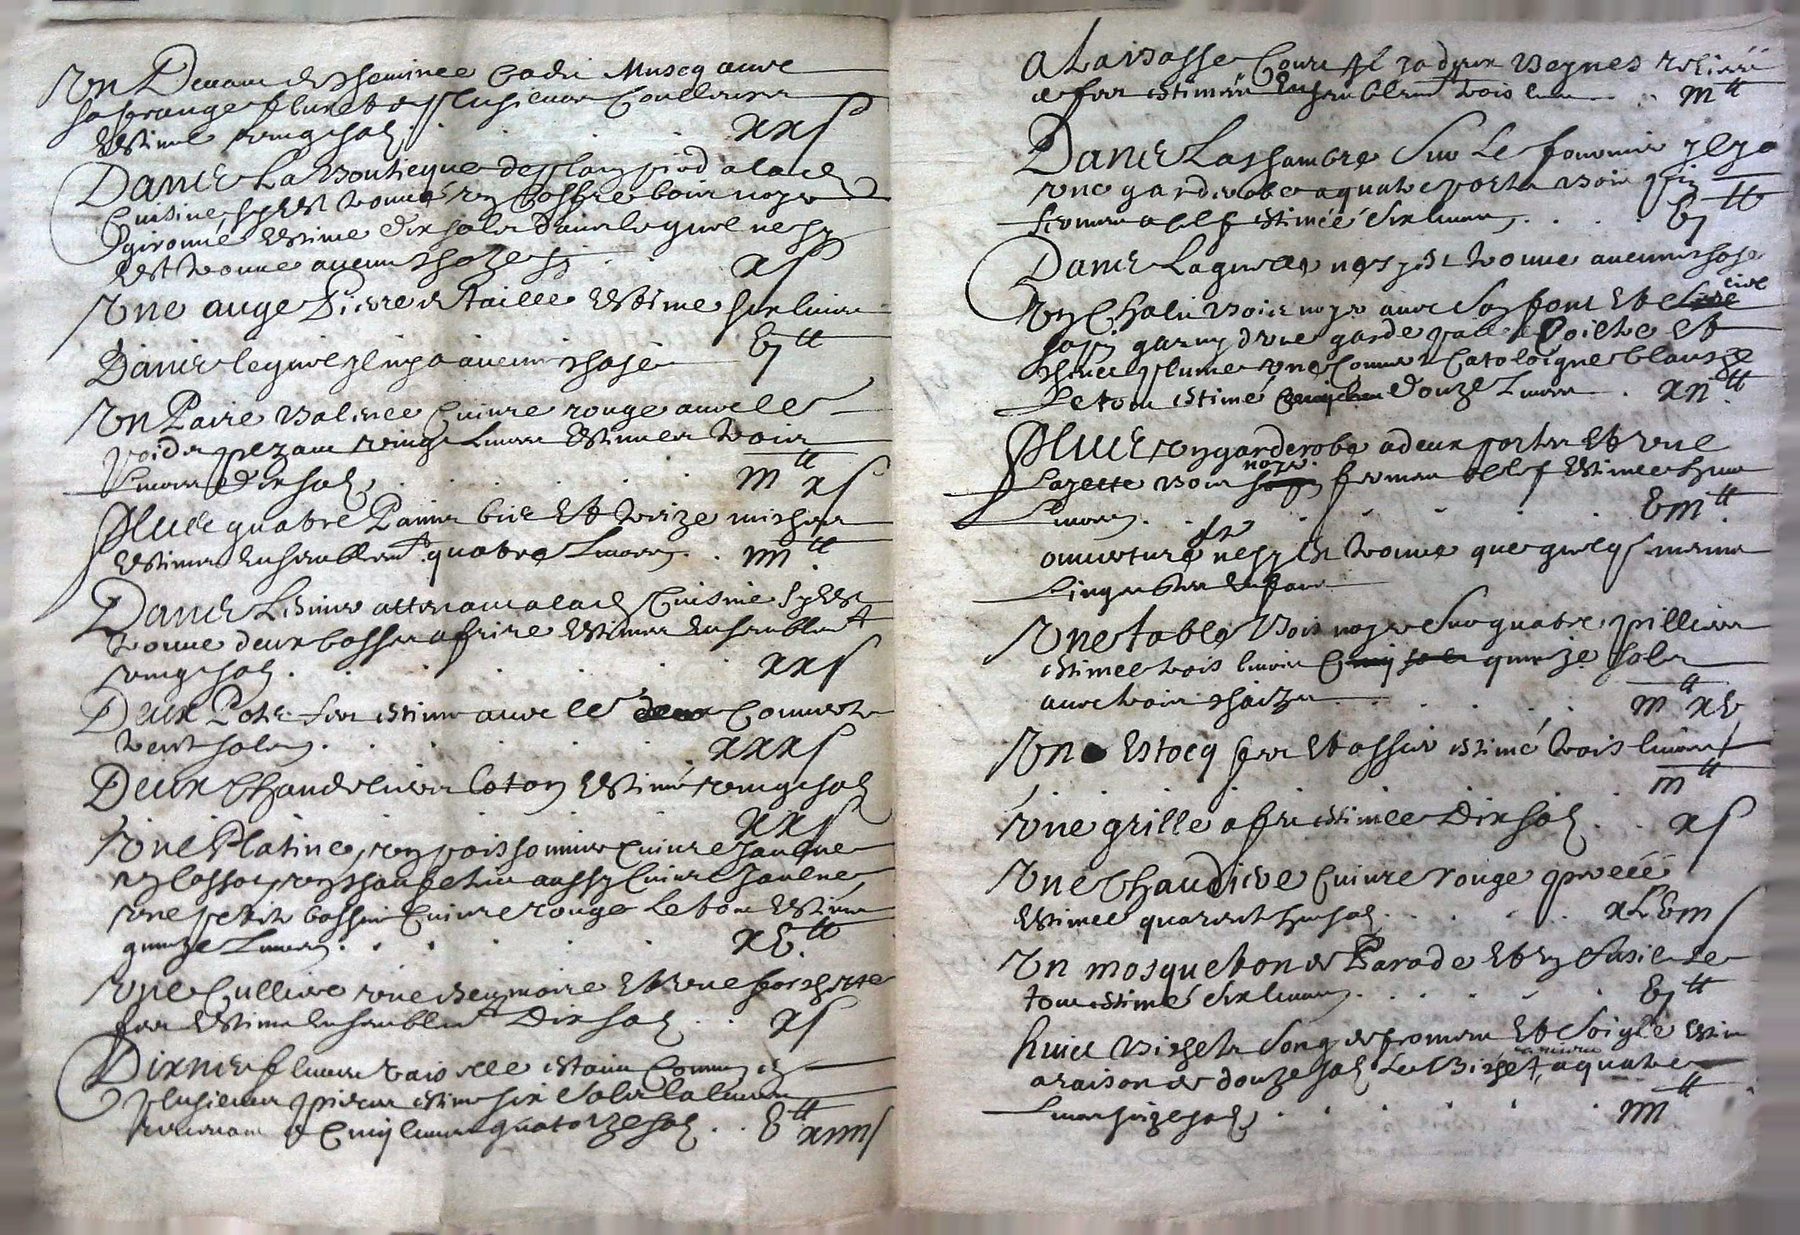 Un Devant de cheminee Cadis Muscq avec
sa frange fleurete de plusieurs Coulleurs
Estimé vingt sols xx s
Dans La Boutique de plain pied a lad
Cuisine, s'y est trouvé un Coffre bois noyer
Estimé dix sols dans lequel ne s'y
Est trouvé aucune choze cy x s
Une auge Pierre de taille Estimé six livres
Dans lequel il n'y a aucune choze vj tt
Un Paire Balance Cuivre rouge avec les
poids pezant vingt Livres Estimée trois
Livres Dix sols iij tt x s
Plus quatre
Estimés Ensemblemt quatre Livres iiij tt
Dans attenant a lad Cuisine s'y est
trouvé deux a frire Estimés Ensemblemt
vingt sols xx s
Deux Pots fer estimé avec les Couverts
trente sols xxx s
Deux Chandeliers loton Estimé vingt sols
xx s
Une Platine, un poissonnier Cuivre Jaulne
un aussy Cuivre Jaulne
une petite bassin Cuivre rouge Le tout Estimé
quinze Livres xv tt
Une Culliere une et une fourchette
fer Estimé Ensemblemt Dix sols x s
Dix neuf livres vaisselle estain Commun en
plusieurs pieces estimé six sols la livre
revenant a Cinq livres quatorze sols v tt xiiij s
A La Basse Cour Il y a deux Beynes
de fer estimée Ensemblemt trois livres iij tt
Dans La chambre Sur Le fournier il y a
une garderobe a quatre portes Bois
fermant a clef estimée six livres vj tt
Dans Lagrelas ne s'y est trouvé aucune chose
Un Chalit Bois noyer avec son font Et Ciel
sapin garny d'une garde paille Coittre Et
plume une Couverte Catoloigne blanche
Le tout estimé douze Livres xij tt
Plus un garderobe a deux portes Et une
Layette Bois noyer fermant a clef Estimée huit
Livres viij tt
ouverture ne s'y est trouvé que quelques menus
Linges des Enfans
Une table Bois noyer Sur quatre pilliers
estimée trois livres quinze sols
avec trois chaizes iij tt xv
Un Estocq fer Et assier estimé trois livres
iij tt
Une grille a feu estimée Dix sols x s
Une Chaudiere Cuivre rouge percée
Estimée quarente huit sols xLviij s
Un mosqueton de Parade Et un fusil Le
tout estimé six livres vj tt
huict Bichets de froment Et Soigle Estimé
a raison de douze sols Le Bichet, a quatre
Livres seize sols iiij tt